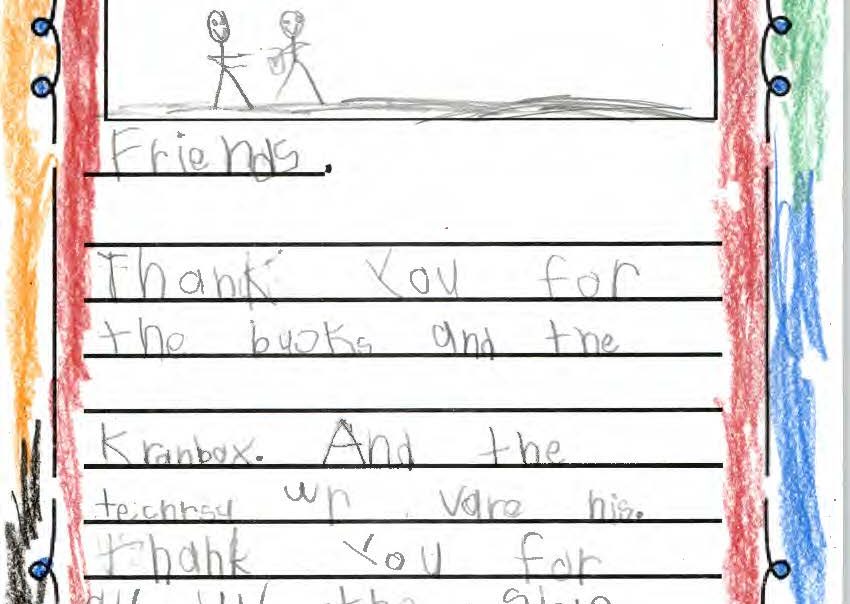 Friends.
Thank You for
the books and the
Kranbox. And the
teichrsy wr vare his.
thank You for
the